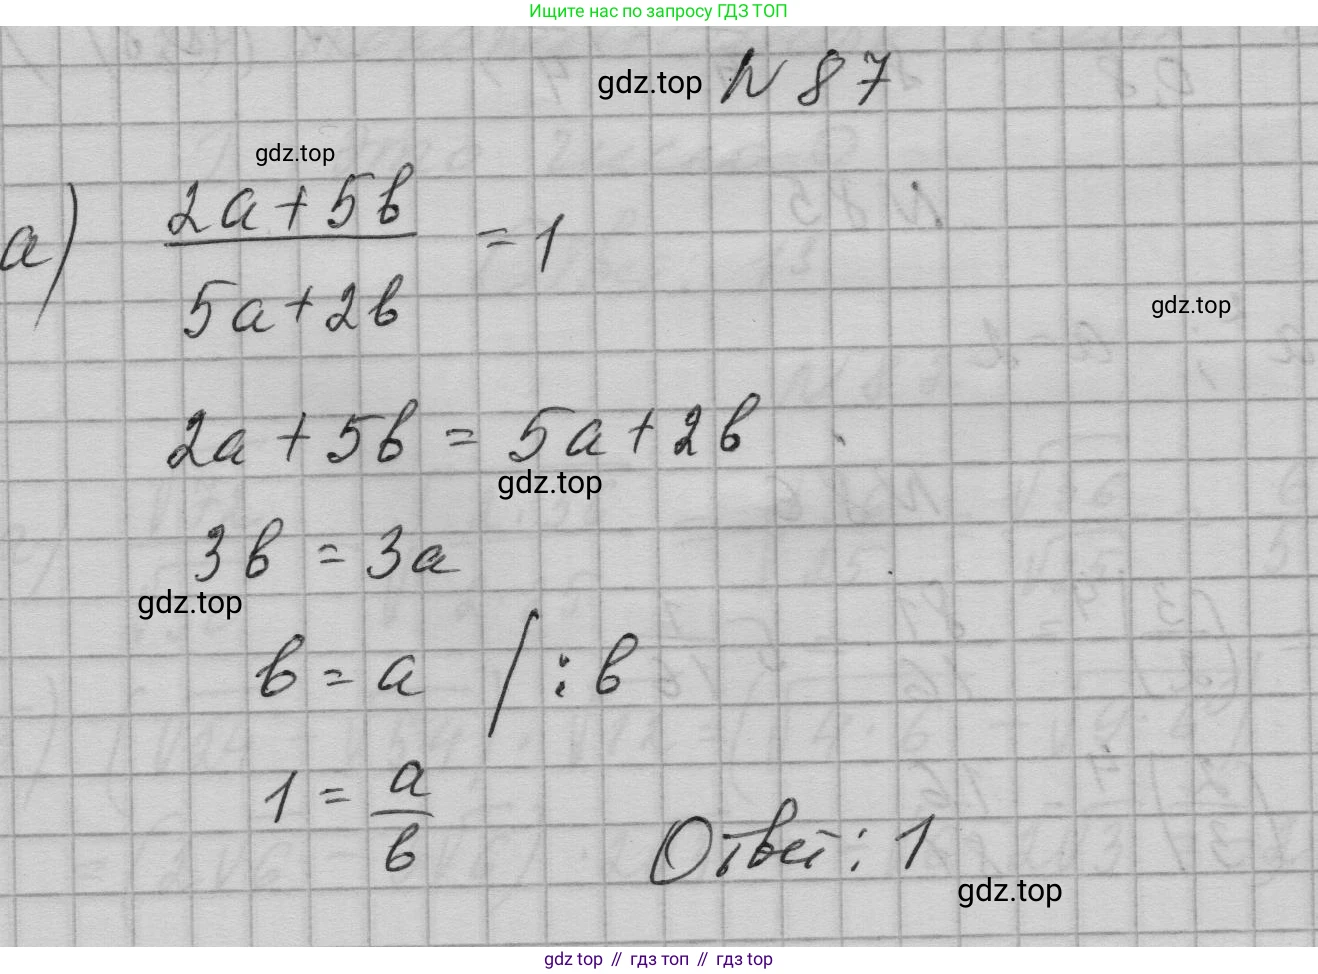 Ищите нас по запросу ГДЗ ТОП
gdz.top N 87
gdz.top
а) (2a+5b)/(5a+2b) = 1
gdz.top
2a + 5b = 5a + 2b
gdz.top
3b = 3a
gdz.top
b = a / : b
1 = a/b
Ответ: 1
gdz.top
gdz top // гдз топ // гдз top